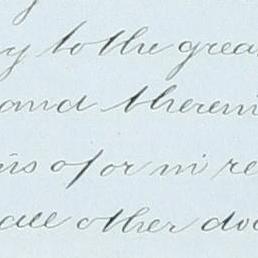 y to the grea
and therein
ns of or in re
all other do